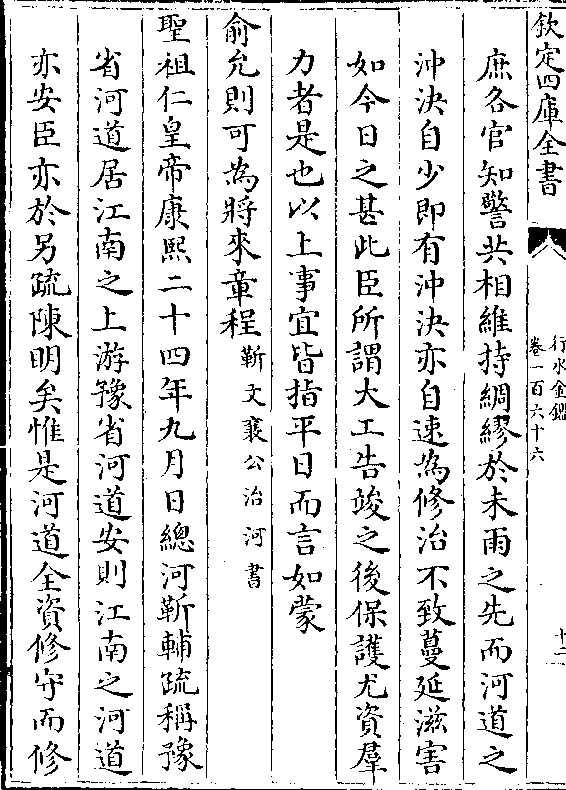 欽定四庫全書
行水金鑑
卷一百六十六
十二
庶各官知警共相維持綢繆於未雨之先而河道之
沖決自少即有沖決亦自速為修治不致蔓延滋害
如今日之甚此臣所謂大工告竣之後保護尤資羣
力者是也以上事宜皆指平日而言如蒙
俞允則可為將來章程靳文襄公治河書
聖祖仁皇帝康熙二十四年九月日總河靳輔疏稱豫
省河道居江南之上游豫省河道安則江南之河道
亦安臣亦於另疏陳明矣惟是河道全資修守而修